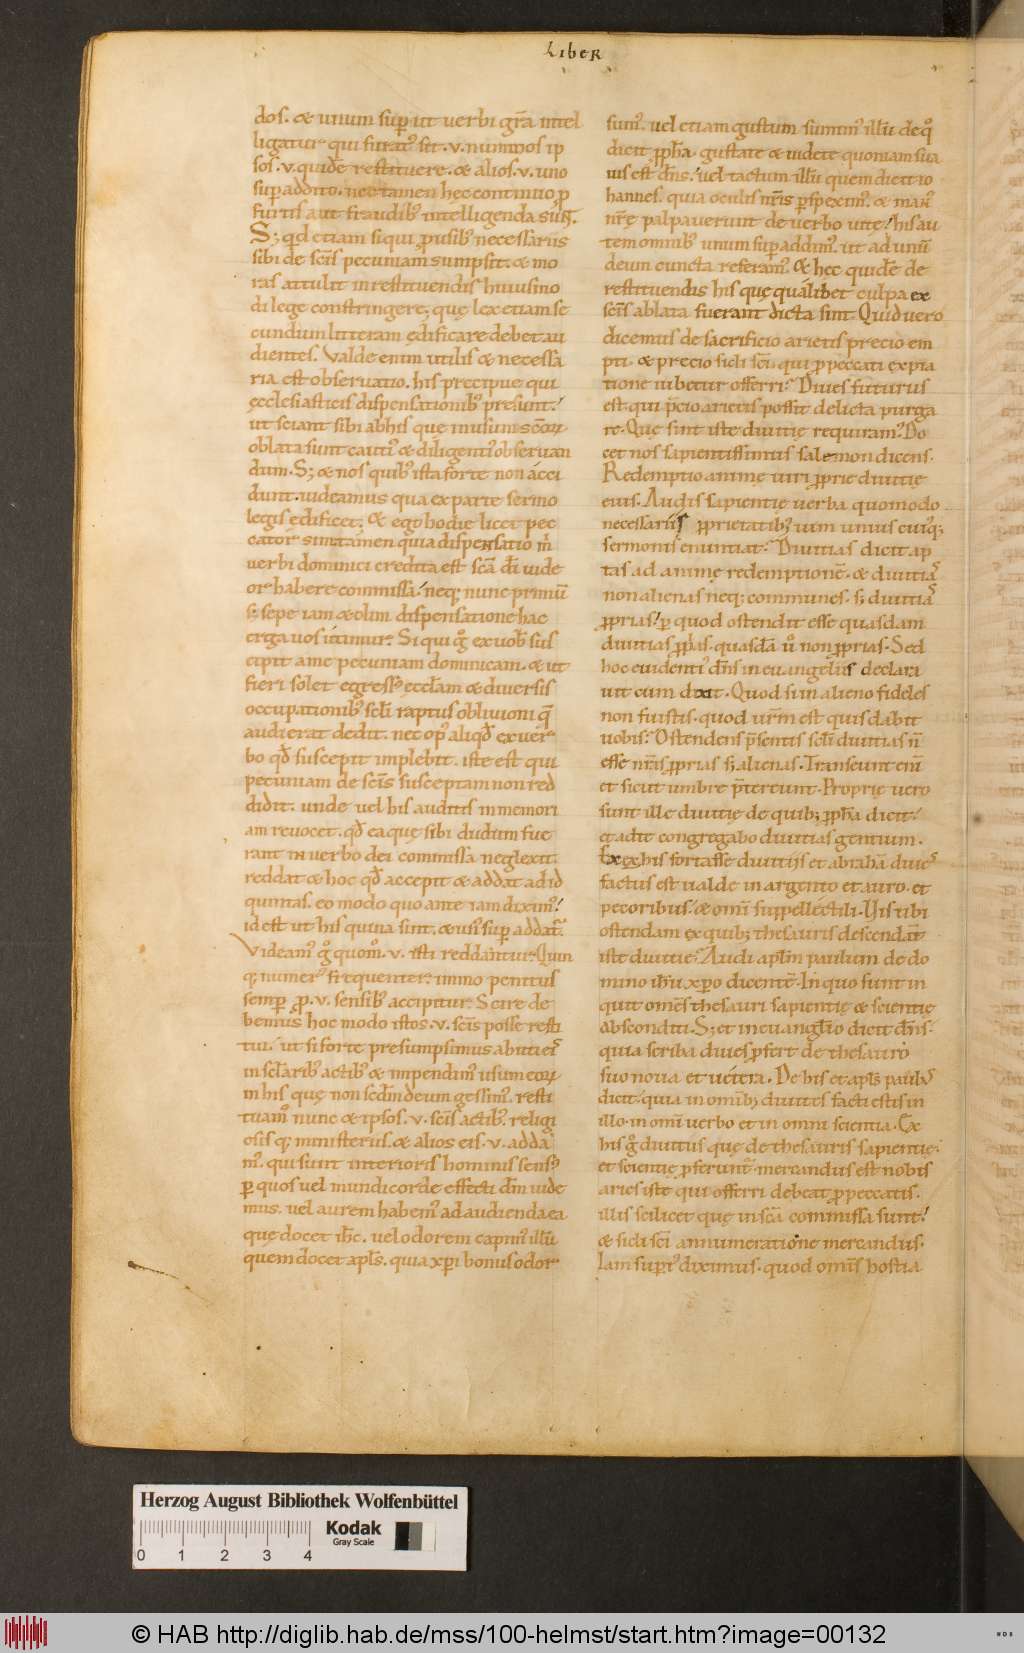 Liber
dos. & unum sup ut verbi gr̃a intel
ligatur qui furat᷒ est .v. nummos ip
sos .v. quidẽ restituere. & alios .v. uno
sup addito. nec tamen hęc continuo p
furtis aut fraudib᷒ intelligenda sunt.
S; qd etiam siqui p usib᷒ necessariis
sibi de sc̃is pecuniam sumpsit. & mo
ras attulit in restituendis huiusmo
di lege constringere, quę lex etiam se
cundum litteram ędificare debet au
dientes. Valde enim utilis & necessa
ria est observatio. his precipue qui
ęcclesiasticis dispensationib᷒ presunt!
ut sciant sibi ab his quę in usum sc̃oꝝ
oblata sunt cauti᷒ & diligenti᷒ observan
dum. S; & nos quib᷒ ista forte non acci
dunt. videamus qua ex parte sermo
legis edificet. & ego hodie licet pec
cator sim tamen quia dispensatio m̃
verbi dominici credita est sc̃a d̃i vide
or habere commissa! neq; nunc primũ
s; sepe iam & olim dispensatione hac
erga vos utimur. Si qui g᷒ ex vob᷒ sus
cipit a me pecuniam dominicam. & ut
fieri solet egress᷒ eccłam & diversis
occupationib᷒ scłi raptus oblivioni q̃
audierat dedit. nec op᷒ aliqd̃ ex ver
bo qd̃ suscepit implebit. iste est qui
pecuniam de sc̃is susceptam non red
didit. unde vel his auditis in memori
am revocet. qd̃ ea quę sibi dudum fue
rant in verbo dei commissa neglexit.
reddat & hoc qd̃ accepit & addat ad id
quintas. eo modo quo ante iam dixim᷒!
id est ut his quina sint. & us᷒ sup addat᷒.
Videam᷒ g᷒ quom᷒ .v. isti reddantur. Quin
q; numer᷒ frequenter. immo penitus
semp p .v. sensib᷒ accipitur. Scire de
bemus hoc modo istos .v. sc̃is posse resti
tui! ut si forte presumpsimus abuti eis
in scłarib᷒ actib᷒ & impendim᷒ usum eoꝝ
in his quę non scd̃m deum gessim᷒. resti
tuam᷒ nunc & ipsos .v. sc̃is actib᷒. religi
osis q; ministeriis. & alios eis .v. adda
m᷒. qui sunt interioris hominis sens᷒
p quos vel mundi corde effecti dm̃ vide
mus. vel aurem habem᷒ ad audienda ea
quę docet ih̃c. vel odorem capim᷒ illũ
quem docet apłs. quia xpi bonus odor
sum᷒. vel etiam gustum sumim᷒ illũ de q᷒
dicit ppha. gustate & videte quoniam sua
vis est dñs! vel tactum illũ quem dicit io
hannes. quia oculis nr̃is pspexim᷒. & man᷒
nr̃ę palpaverunt de verbo vitę! his au
tem omnib᷒ unum sup addim᷒. ut ad unũ
deum cuncta referam᷒. & hec quidẽ de
restituendis his quę qualibet culpa ex
sc̃is ablata fuerant dicta sint. Quid vero
dicemus de sacrificio arietis precio em
pti. & precio sicli sc̃i. qui p peccati expia
tione iubetur offerri? Dives futurus
est qui pcio arietis possit delicta purga
re. Quę sint iste divitię requiram᷒? Do
cet nos sapientissimus salemon dicens.
Redemptio animę viri pprie divitię
eius. Audis sapientię verba quomodo
necessariis pprietatib᷒ vim unius cuiusq;
sermonis enuntiat? Divitias dicit ap
tas ad animę redemptionẽ. & divitias
non alienas neq; communes. s; divitias
pprias! p quod ostendit esse quasdam
divitias pprias. quasdã u᷒ non pprias. Sed
hoc evidenti᷒ dñs in evangeliis declara
vit cum dixit. Quod si in alieno fideles
non fuistis. quod vr̃m est quis dabit
vobis? Ostendens psentis scłi divitias ñ
esse nr̃as pprias s; alienas. Transeunt eni
et sicut umbre ptereunt. Proprię vero
sunt ille divitię de quib; ppha dicit!
et adit congregabo divitias gentium.
Ex his fortasse divitiis et abrahã dives
factus est valde in argento et auro. et
pecoribus! & omi suppellectili. Vis tibi
ostendam ex quib; thesauris descendat
iste divitię? Audi apłm paulum de do
mino ihu xpo dicentẽ. In quo sunt in
quit om̃s thesauri sapientię & scientię
absconditi. S; et in evanglio dicit dñs.
quia scriba dives pfert de thesauro
suo nova et vetera. De his et apłs paulus
dicit! quia in omib; divites facti estis in
illo. in omi verbo et in omni scientia. Ex
his g᷒ divitiis quę de thesauris sapientię
et scientię pferuntur mercandus est nobis
aries iste qui offerri debeat p peccatis.
illis scilicet quę in sc̃a commissa sunt!
& sicli sc̃i annumeratione mercandus.
Iam superi᷒ diximus. quod omis hostia
Herzog August Bibliothek Wolfenbüttel
0 1 2 3 4
Kodak
Gray Scale
© HAB http://diglib.hab.de/mss/100-helmst/start.htm?image=00132